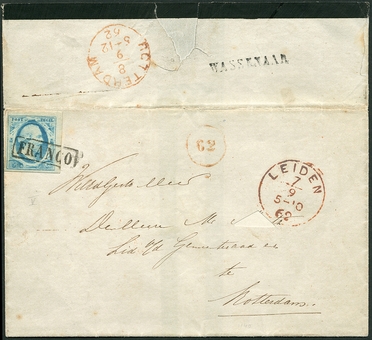 ROTTERDAM
8
9
8-12
62
WASSENAAR
FRANCO
62
LEIDEN
7
9
5-10
62
De Heer M
Lid v/d Gemeenteraad
te
Rotterdam